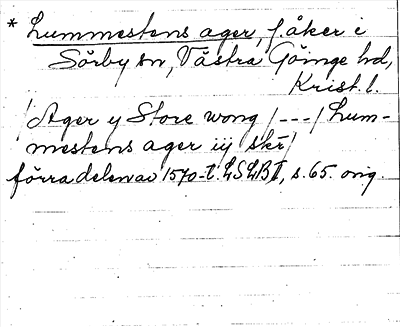 * Lummestens ager, f. åker i
Sörby sn, Västra Göinge hd,
Krist. l.
/Ager y Store wong /---/ Lum-
mestens ager iij skr/
förra delen av 1570-t. LSLB II, s. 65. orig.